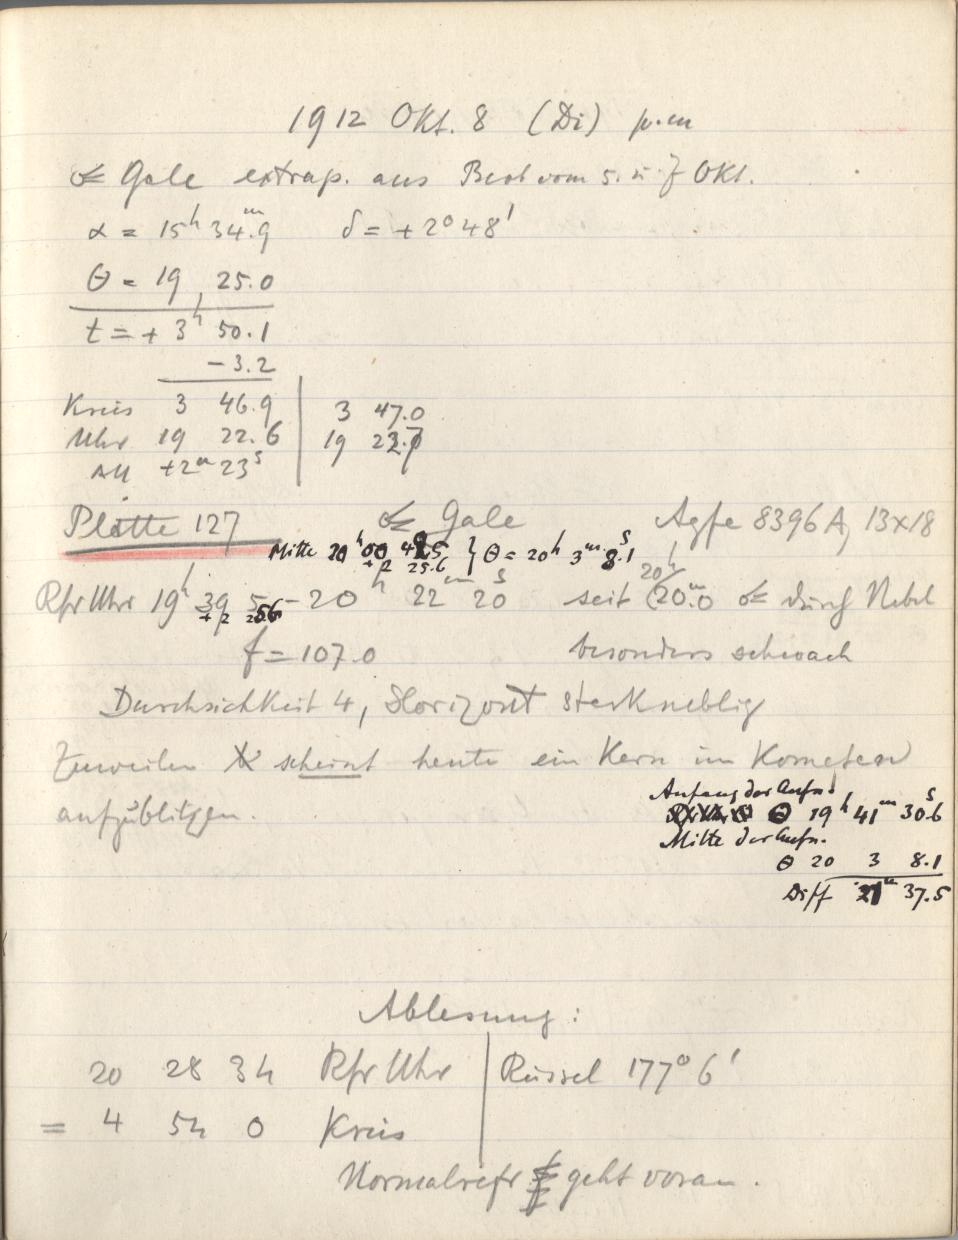 1912 Okt. 8 (Di) p.m
☄ Gale extrap. aus Beob vom 5. u. 7 Okt.
α = 15h 34m.9 δ = +2° 48'
θ = 19 25.0
t = + 3h 50.1
- 3.2
Kreis 3 46.9 | 3 47.0
Uhr 19 22.6 | 19 22.7
ΔU +2m 23s
Platte 127 ☄ Gale Agfa 8396 A, 13x18
Mitte 20h 00 42.5 } θ = 20h 3m 8.1s
+ 2 25.6
Rfr Uhr 19h 39 5 - 20h 22m 20s seit (20h 20m.0 ☄ durch Nebel
+ 2 25.6
f = 107.0 besonders schwach
Durchsichkeit 4, Horizont starkneblig
Zuweilen scheint heute ein Kern im Kometen
aufzublitzen.
Anfang der Aufn.
θ 19h 41m 30.6s
Mitte der Aufn.
θ 20 3 8.1
Diff 21m 37.5
Ablesung:
20 28 34 Rfr Uhr | Rüssel 177° 6'
= 4 54 0 Kreis
Normalrefr geht voran.